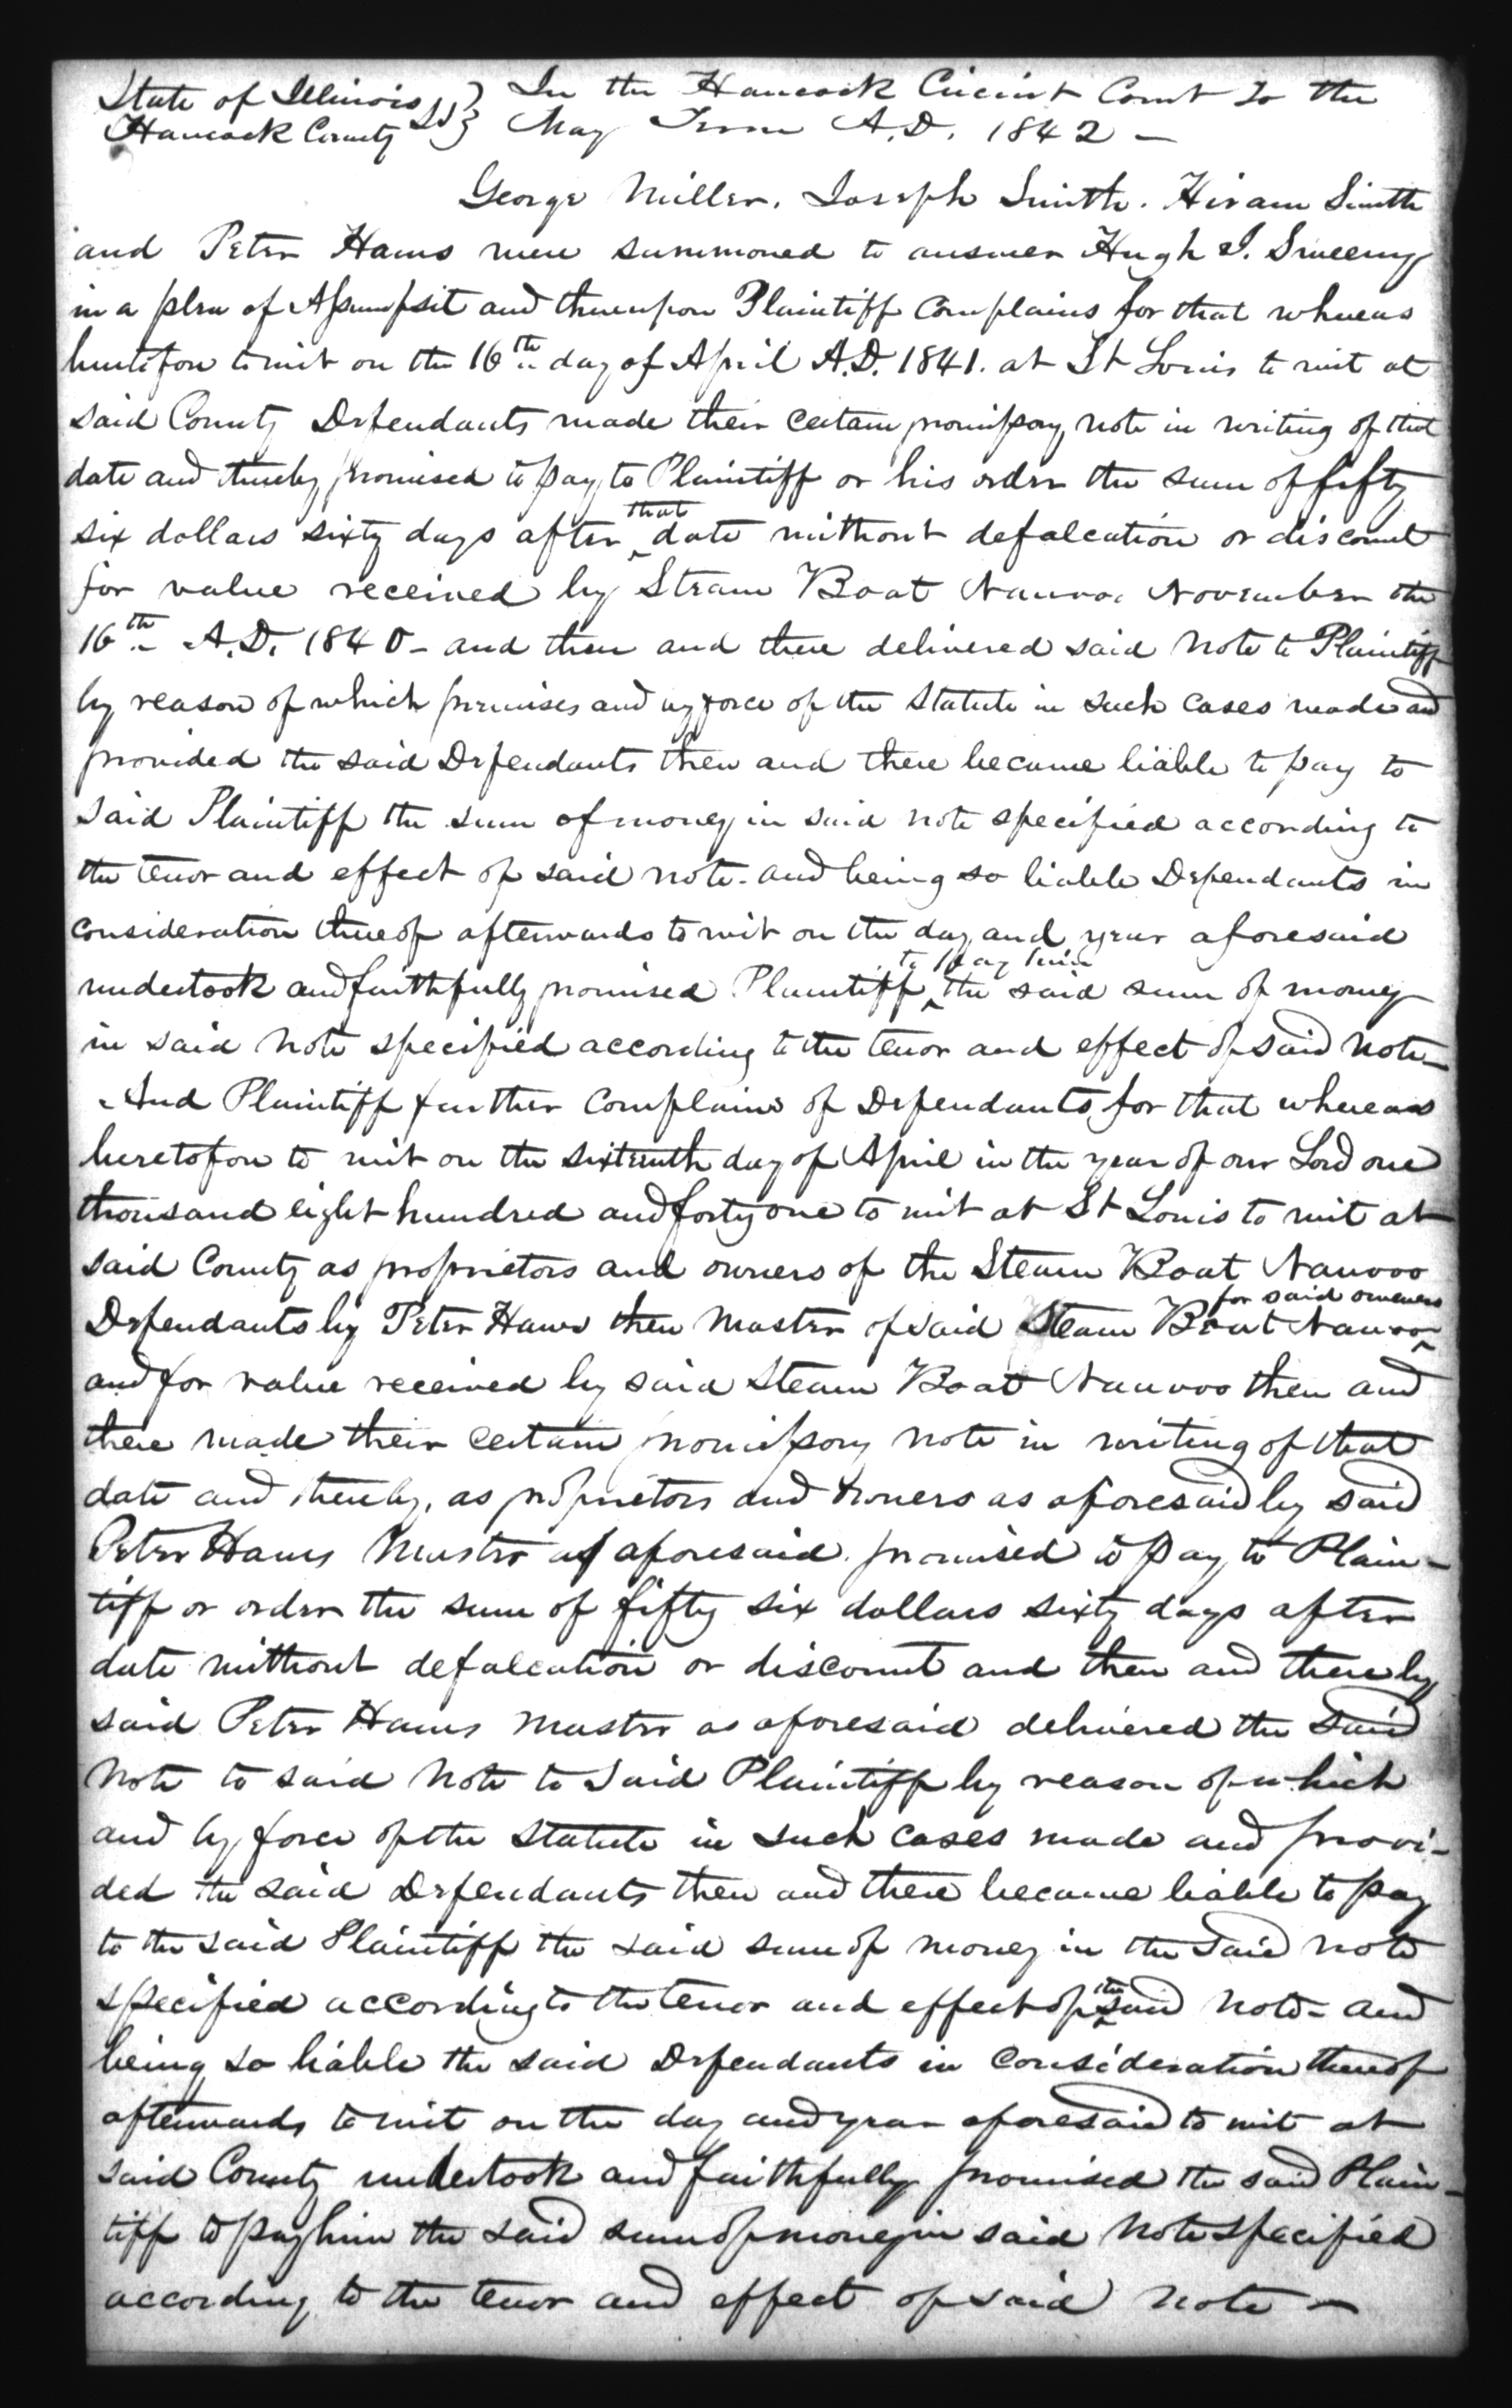 State of Illinois } ss } In the Hancock Circuit Court to the
Hancock County } May Term A.D. 1842 –
George Miller, Joseph Smith. Hiram Smith
and Peter Haws were summoned to answer Hugh I. Sweeney
in a plea of Assumpsit and thereupon Plaintiff complains for that whereas
heretofore towit on the 16th day of April A.D. 1841. at St Louis to wit at
said County Defendants made their certain promissory note in writing of that
date and thereby promised to pay to Plaintiff or his order the sum of fifty
six dollars sixty days after ^that date without defalcation or discount
for value received by Steam Boat Nauvoo November the
16th A.D. 1840 – and then and there delivered said Note to Plaintiff
by reason of which premises and by force of the Statute in such cases made and
provided the said Defendants then and there became liable to pay to
said Plaintiff the sum of money in said note specified according to
the tenor and effect of said note. and being so liable Defendants in
consideration thereof afterwards to wit on the day and year aforesaid
undertook and faithfully promised Plaintiff ^to pay him the said sum of money
in said Note specified according to the tenor and effect of said Note –
And Plaintiff further complains of Defendants for that whereas
heretofore to wit on the sixteenth day of April in the year of our Lord one
thousand eight hundred and forty one to wit at St Louis to wit at
said County as proprietors and owners of the Steam Boat Nauvoo
Defendants by Peter Haws then Master of said Steam Boat Nauvoo ^for said owners
and for value received by said Steam Boat Nauvoo then and
there made their certain promissory note in writing of that
date and thereby, as proprietors and owners as aforesaid by said
Peter Haws Master as aforesaid. promised to pay to Plain-
tiff or order the sum of fifty six dollars sixty days after
date without defalcation or discount and then and there by
said Peter Haws Master as aforesaid delivered the said
Note to said Note to said Plaintiff by reason of which
and by force of the Statute in such cases made and provi-
ded the said Defendants then and there became liable to pay
to the said Plaintiff the said sum of money in the said note
specified according to the tenor and effect of ^the said Note – and
being so liable the said Defendants in consideration thereof
afterwards to wit on the day and year aforesaid to wit at
said County undertook and faithfully promised the said Plain-
tiff to pay him the said sum of money in said Note specified
according to the tenor and effect of said note –